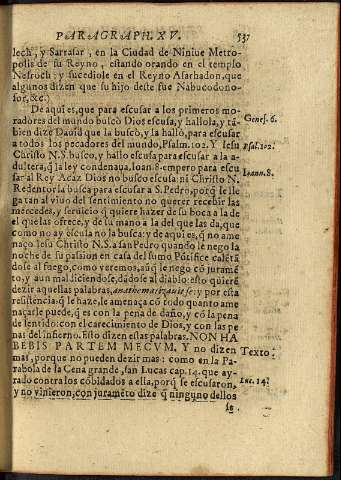 PARAGRAPH. XV. 537
lech, y Sarrasar, en la Ciudad de Niniue Metro-
polis de su Reyno, estando orando en el templo
Nesroch; y sucediole en el Reyno Asarhadon, que
algunos dizen que su hijo deste fue Nabucodono-
sor, &c.)
De aqui es, que para escusar a los primeros mo-
radores del mundo buscò Dios escusa, y hallola, y tã-
bien dize Dauid que la buscò, y la hallò, para escusar
a todos los pecadores del mundo, Psalm. 102. Y Iesu
Christo N. S. busco, y hallo escusa para escusar a la a-
dultera, q̃ la ley condenaua, Ioan. 8. empero para escu
sar al Rey Acaz Dios no busco escusa: ni Christo N.
Redentor la busca para escusar a S. Pedro, porq̃ le lle
ga tan al viuo del sentimiento no querer recibir las
mercedes, y seruicio q̃ quiere hazer de su boca a la de
el que las ofrece, y de su mano a la del que las da, que
como no ay escusa no la busca: y de aqui es, q̃ no ame
naço Iesu Christo N. S. a san Pedro quando le nego la
noche de su passion en casa del sumo Põtifice calẽtã
dose al fuego, como veremos, aũq̃ le negò cõ jurame̅
to, y aun maldiciendose, dãdose al diablo: esto quiere
dezir aquellas palabras, anathematizauit se: y por esta
resistencia q̃ le haze, le amenaça cõ todo quanto ame
naçarle puede, q̃ es con la pena de daño, y cõ la pena
de sentido: con el carecimiento de Dios, y con las pe
nas del infierno. Esto dizen estas palabras. NON HA
BEBIS PARTEM MECVM. Y no dizen
mas, porque no pueden dezir mas: como en la Pa-
rabola de la Cena grande, san Lucas cap. 14. que ay-
rado contra los cõbidados a ella, porq̃ se escusaron,
y no vinieron, con juramẽto dize q̃ ninguno dellos
Genes. 6.
Psal. 102.
Ioann. 8.
Texto.
Luc. 14.